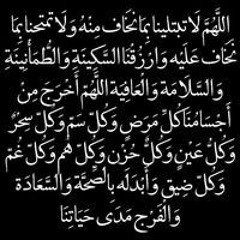 اللَّهُمَّ لَا تَبْتَلِينَا بِمَا نَخَافُ مِنْهُ وَلَا تَمْتَحِنَا بِمَا
نَخَافُ عَلَيْهِ وَارْزُقْنَا السَّكِينَةَ وَالطُّمَأْنِينَةَ
وَالسَّلَامَةَ وَالْعَافِيَةَ اللَّهُمَّ أَخْرِجْ مِنْ
أَجْسَامِنَا كُلَّ مَرَضٍ وَكُلَّ سَمٍّ وَكُلَّ سِحْرٍ
وَكُلَّ عَيْنٍ وَكُلَّ حُزْنٍ وَكُلَّ هَمٍّ وَكُلَّ غَمٍّ
وَكُلَّ ضِيقٍ وَأَبْدِلْهُ بِالصِّحَّةِ وَالسَّعَادَةِ
وَالْفَرَجِ مَدَى حَيَاتِنَا